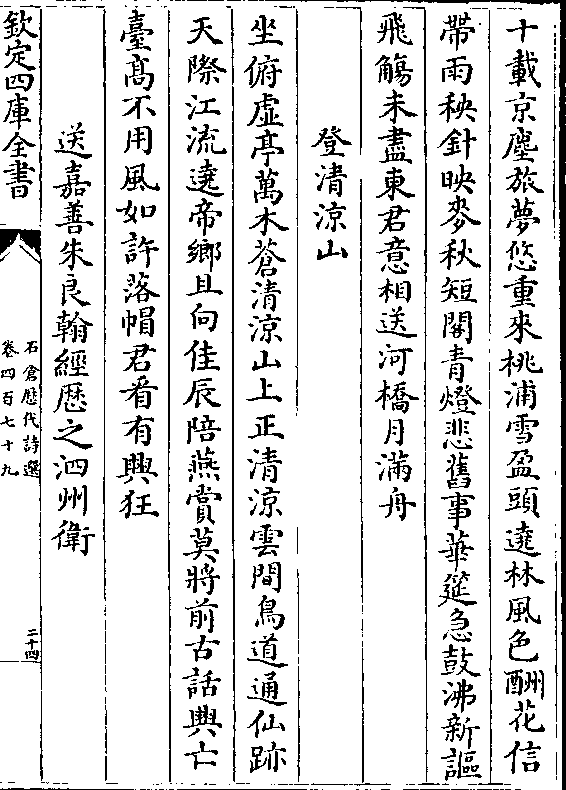 十載京塵旅夢悠重來桃浦雪盈頭遶林風色酬花信
帶雨秧針映麥秋短閣青燈悲舊事華筵急鼓沸新謳
飛觴未盡東君意相送河橋月滿舟
登清涼山
坐俯虛亭萬木蒼清涼山上正清涼雲間鳥道通仙跡
天際江流遶帝鄉且向佳辰陪燕賞莫將前古話興亡
臺高不用風如許落帽君看有興狂
送嘉善朱良翰經歷之泗州衛
欽定四庫全書
石倉歷代詩選
卷四百七十九
二十四